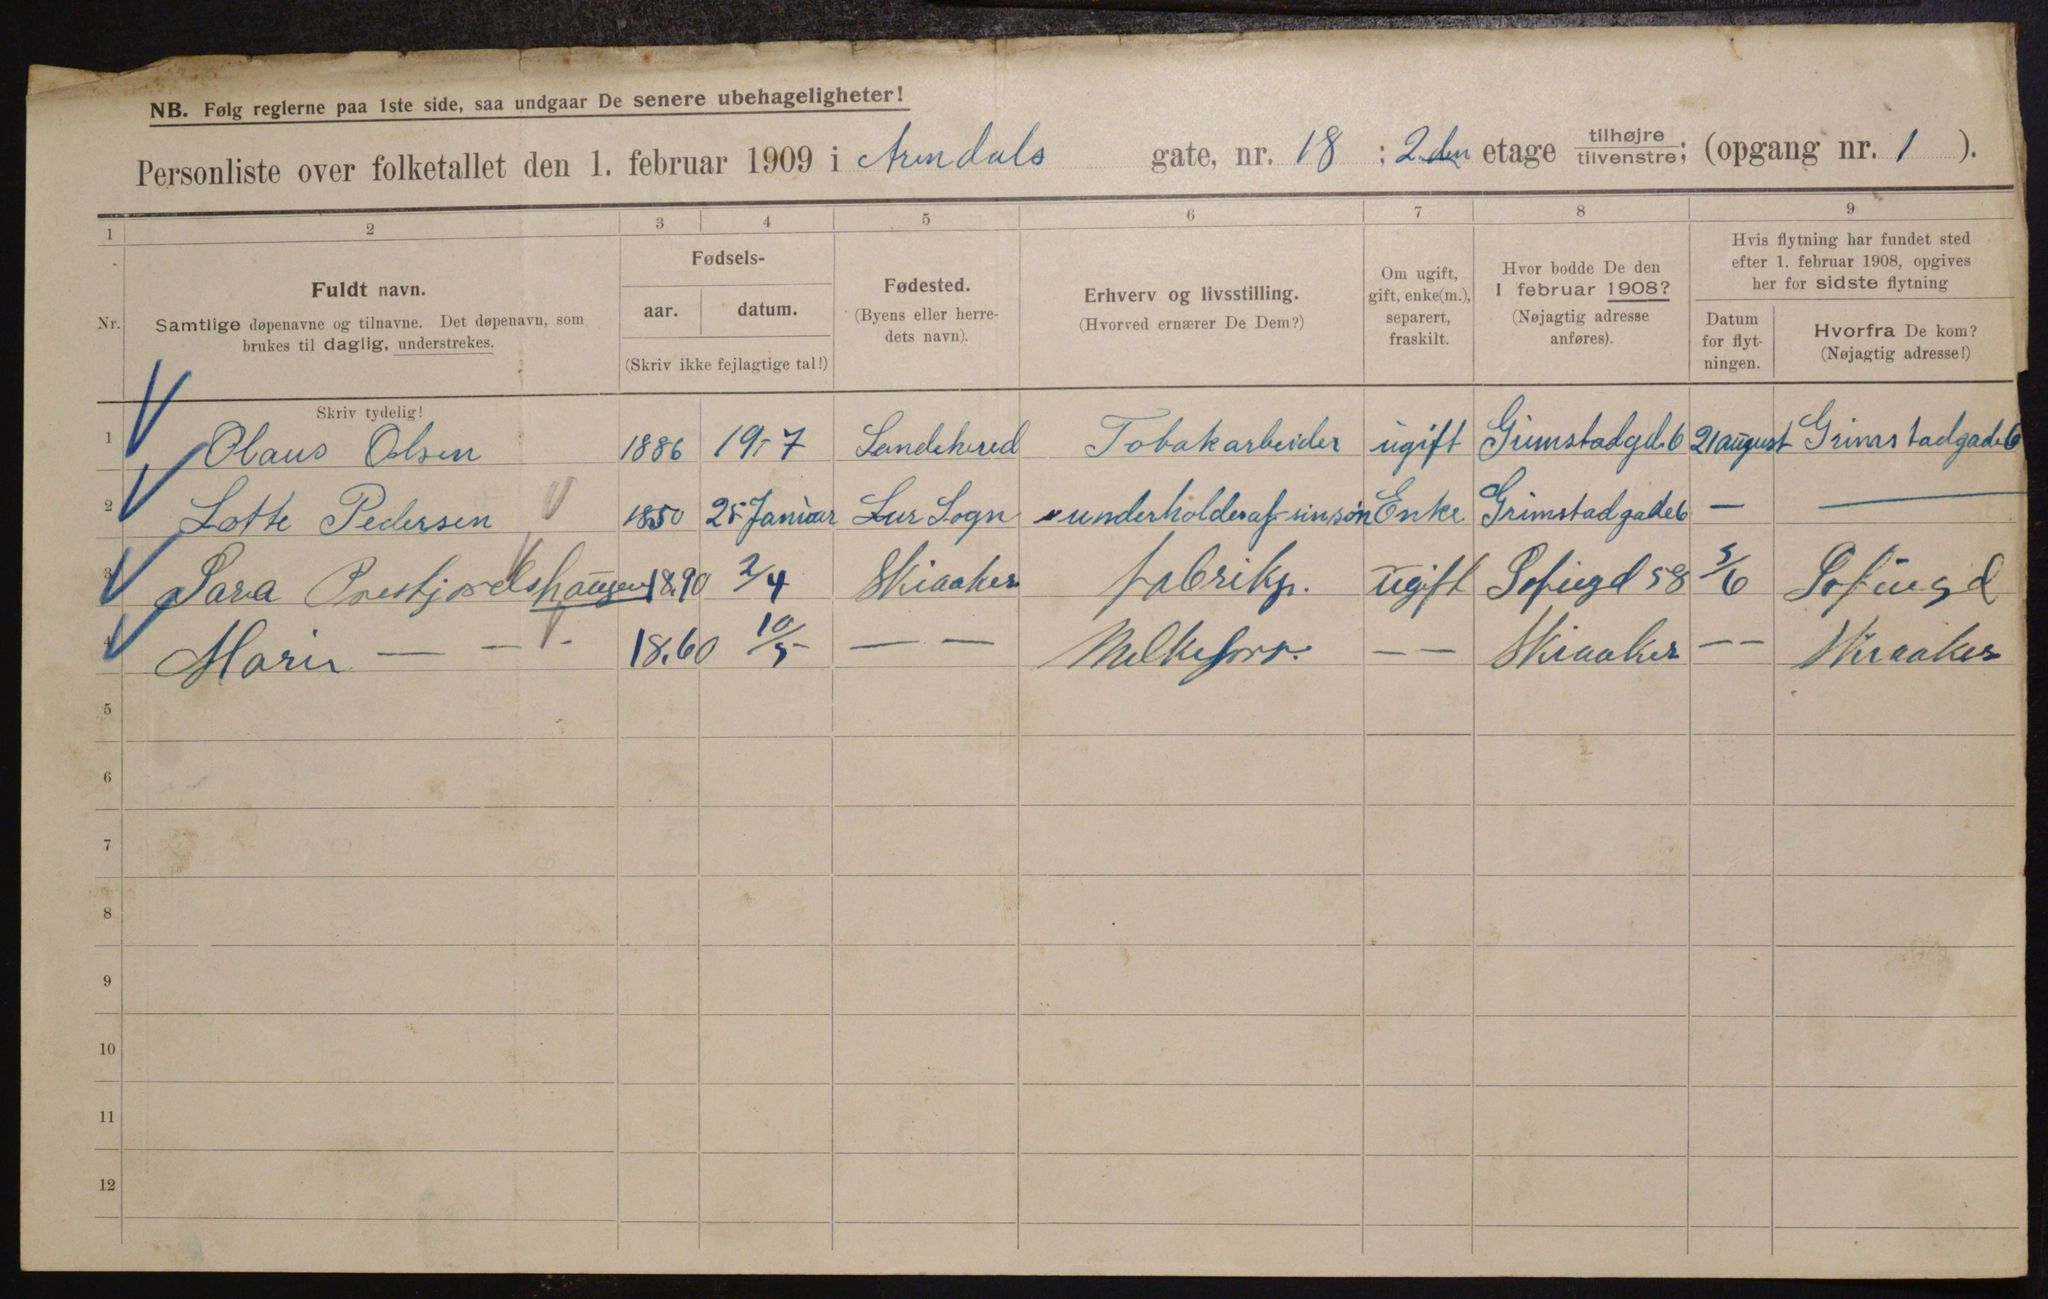 NB. Følg reglerne paa 1ste side, saa undgaar De senere ubehageligheter!
Personliste over folketallet den 1. februar 1909 i Arendals gate, nr. 18 ; 2.den etage tilhøjre/tilvenstre; (opgang nr. 1 ).
1 2 3 4 5 6 7 8 9
Nr.
Fuldt navn.
Samtlige døpenavne og tilnavne. Det døpenavn, som
brukes til daglig, understrekes.
Skriv tydelig!
Fødsels-
aar. datum.
(Skriv ikke fejlagtige tal!)
Fødested.
(Byens eller herre-
dets navn).
Erhverv og livsstilling.
(Hvorved ernærer De Dem?)
Om ugift,
gift, enke(m.),
separert,
fraskilt.
Hvor bodde De den
1 februar 1908?
(Nøjagtig adresse
anføres).
Hvis flytning har fundet sted
efter 1. februar 1908, opgives
her for sidste flytning
Datum
for flyt-
ningen.
Hvorfra De kom?
(Nøjagtig adresse!)
1 Olaus Olsen 1886 19-7 Landehered Tobakarbeider ugift Grimstadgd.6 21 august Grimstadgade6
2 Lotte Pedersen 1850 25 Januar Lur Sogn underholdes af sin søn Enke Grimstadgade6 — —
3 Sara 1890 2/4 Skiaaker fabrikp. ugift Sofiegd 58 5/6 Sofiegd
4 Mari — — - 18.60 10/5 — — — — Skiaaker — — Skiaaker
5
6
7
8
9
10
11
12